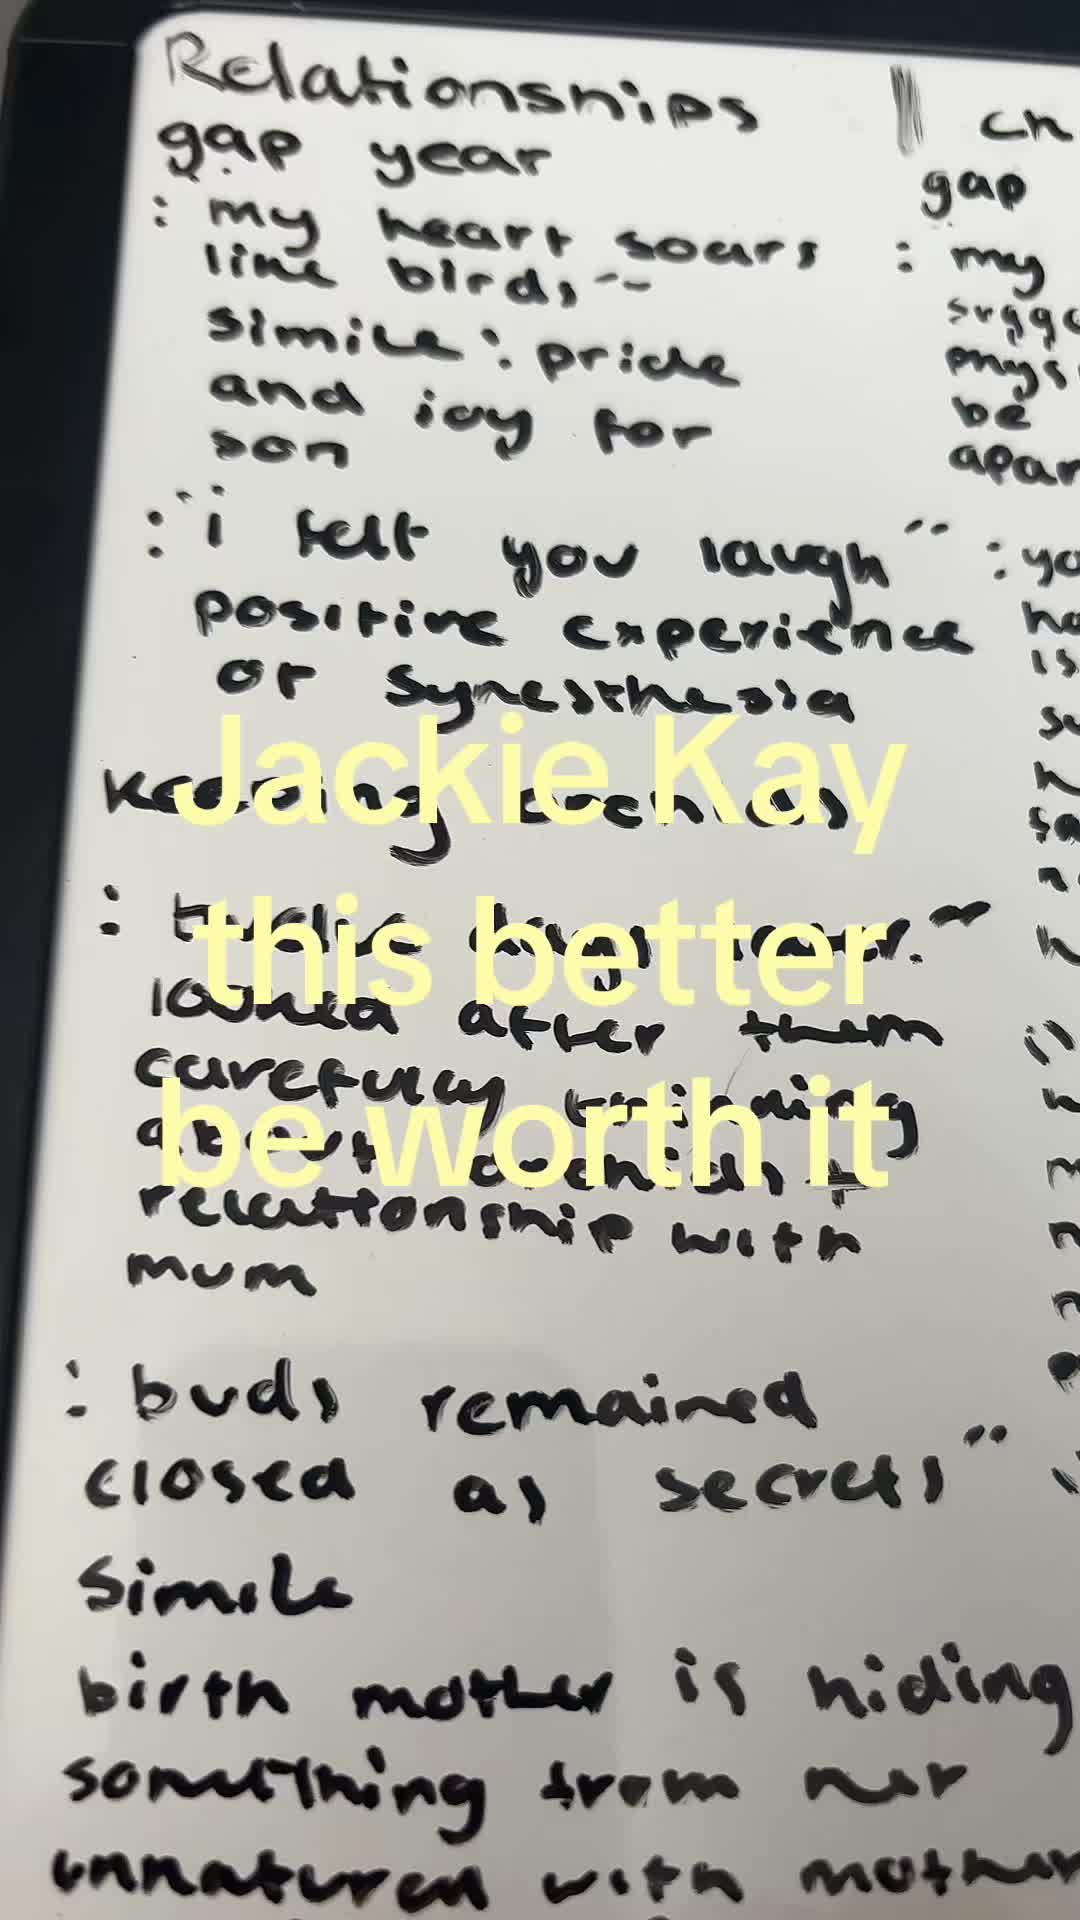 Relationships
gap year
: my heart soars
like birds"
simile : pride
and joy for
son
: "i felt you laugh"
positive experience
of synesthesia
Keeping orchids
: twelve days later."
looked after them
carefully thinking
about orchids +
relationship with
mum
: buds remained
closed as secrets"
simile
birth mother is hiding
something from her
unnatured with mother
ch
gap
: my
sugge
phys
be
apar
: yo
ha
is
Jackie Kay
this better
be worth it